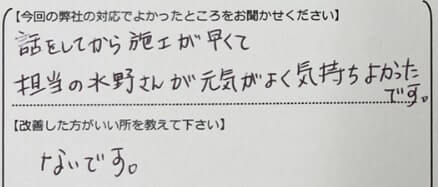 【今回の弊社の対応でよかったところをお聞かせください】
話をしてから施工が早くて
担当の水野さんが元気がよく気持ちよかった
です。
【改善した方がいい所を教えて下さい】
ないです。